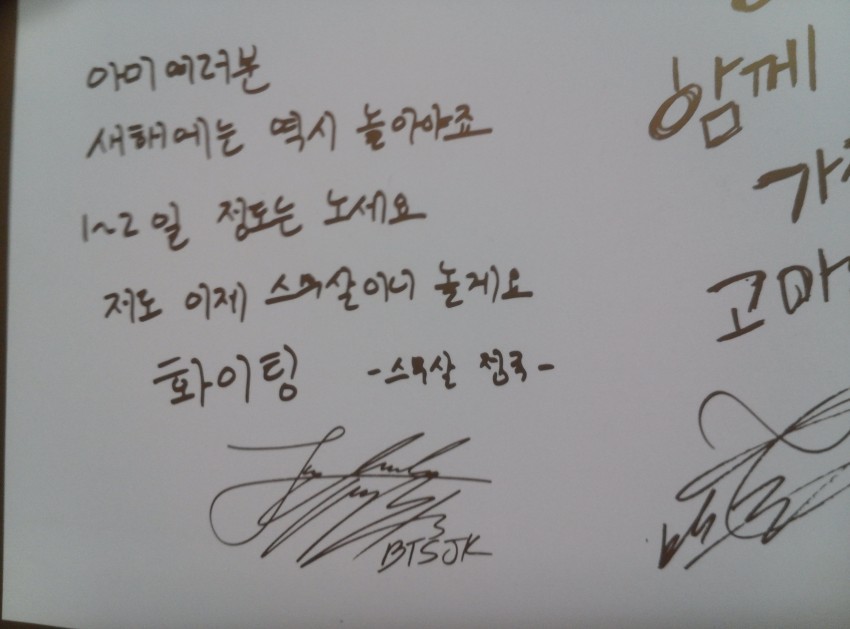 아미 여러분
새해에는 역시 놀아야죠
1~2일 정도는 노세요
저도 이제 스무살이니 놀게요
화이팅 -스무살 정국-
BTS JK
함께
가
고마